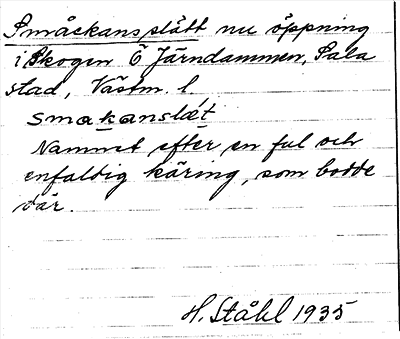 Småckansslått nu öppning
i Skogen Ö Järndammen, Sala
stad, Västm. l
smakanslæt
Namnet efter en ful och
enfaldig käring, som bodde
där.
H. Ståhl 1935